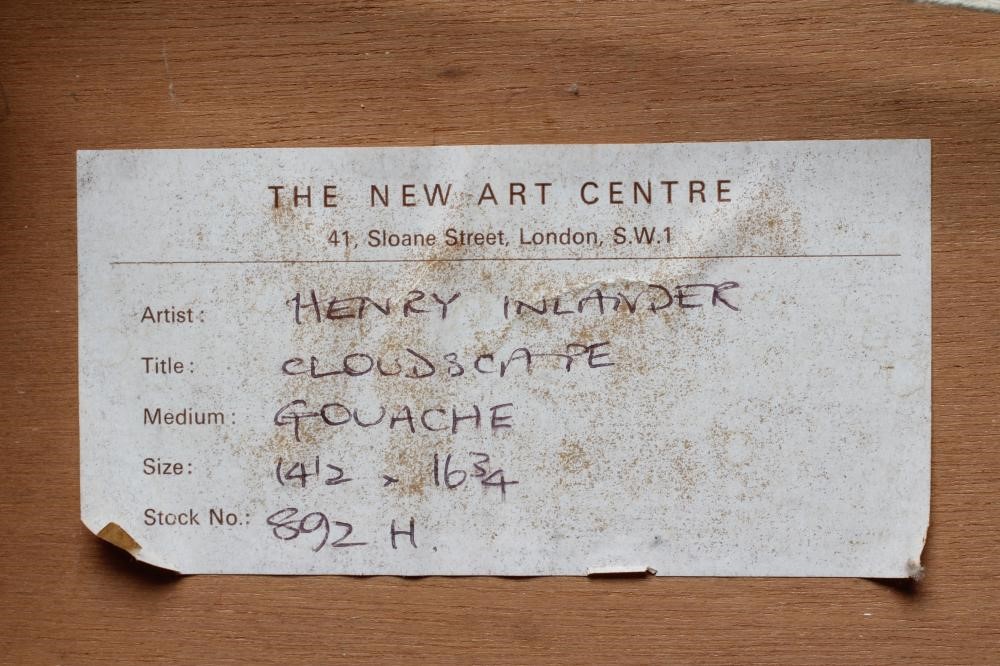 THE NEW ART CENTRE
41, Sloane Street, London, S.W.1
Artist: HENRY INLANDER
Title: CLOUDSCAPE
Medium: GOUACHE
Size: 14 1/2 x 16 3/4
Stock No.: 892 H.